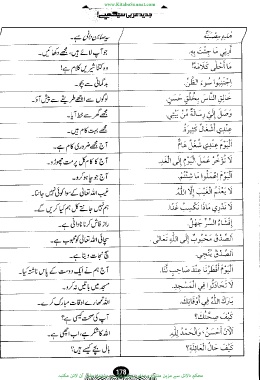 www.KitaboSunnat.com
جدید عربی سیکھیے!
هٰذِهِ مِقْشَةٌ یہ صابن دانی ہے۔
أَرِنِي مَا جِئْتَ بِهِ. جو آپ لائے ہیں، مجھے دکھائیں۔
مَا أَحْلَى كَلَامَهُ! وہ کتنا شیریں کلام ہے!
اِجْتَنِبُوا سُوءَ الظَّنِّ. بدگمانی سے بچو۔
خَالِقِ النَّاسَ بِخُلُقٍ حَسَنٍ. لوگوں سے اچھے طریقے سے پیش آؤ۔
وَصَلَ إِلَيَّ رِسَالَةٌ مِنْ بَيْتِي. مجھے گھر سے خط آیا۔
عِنْدِي أَشْغَالٌ كَثِيرَةٌ. مجھے بہت کام ہیں۔
الْيَوْمَ عِنْدِي شُغْلٌ هَامٌّ. آج مجھے ضروری کام ہے۔
لَا تُؤَخِّرْ عَمَلَ الْيَوْمِ إِلَى الْغَدِ. آج کا کام کل پر مت چھوڑو۔
الْيَوْمَ اِعْمَلُوا مَا شِئْتُمْ. آج جو چاہو کرو۔
لَا يَعْلَمُ الْغَيْبَ إِلَّا اللهُ. غیب اللہ تعالیٰ کے سوا کوئی نہیں جانتا۔
لَا نَدْرِي مَاذَا نَكْسِبُ غَدًا. ہم نہیں جانتے کل ہم کیا کریں گے۔
إِفْشَاءُ السِّرِّ جَهْلٌ. راز فاش کرنا نادانی ہے۔
الصِّدْقُ مَحْبُوبٌ إِلَى اللهِ تَعَالَى. سچائی اللہ تعالیٰ کو محبوب ہے۔
الصِّدْقُ يُنْجِي. سچ نجات دیتا ہے۔
الْيَوْمَ أَفْطَرْنَا عِنْدَ صَاحِبٍ لَنَا. آج ہم نے ایک دوست کے پاس ناشتہ کیا۔
لَا تُحَادِثُوا فِي الْمَسْجِدِ. مسجد میں باتیں نہ کرو۔
بَارَكَ اللهُ فِي أَوْقَاتِكَ. اللہ تمہارے اوقات میں برکت کرے۔
كَيْفَ صِحَّتُكَ؟ آپ کی صحت کیسی ہے؟
اَلْآنَ أَحْسَنُ، وَالْحَمْدُ لِلّٰهِ. اللہ کا شکر ہے، اب اچھی ہے۔
كَيْفَ حَالُ الْعَائِلَةِ؟ بال بچے کیسے ہیں؟
178
محکم دلائل سے مزین متنوع و منفرد موضوعات پر مشتمل مفت آن لائن مکتبہ